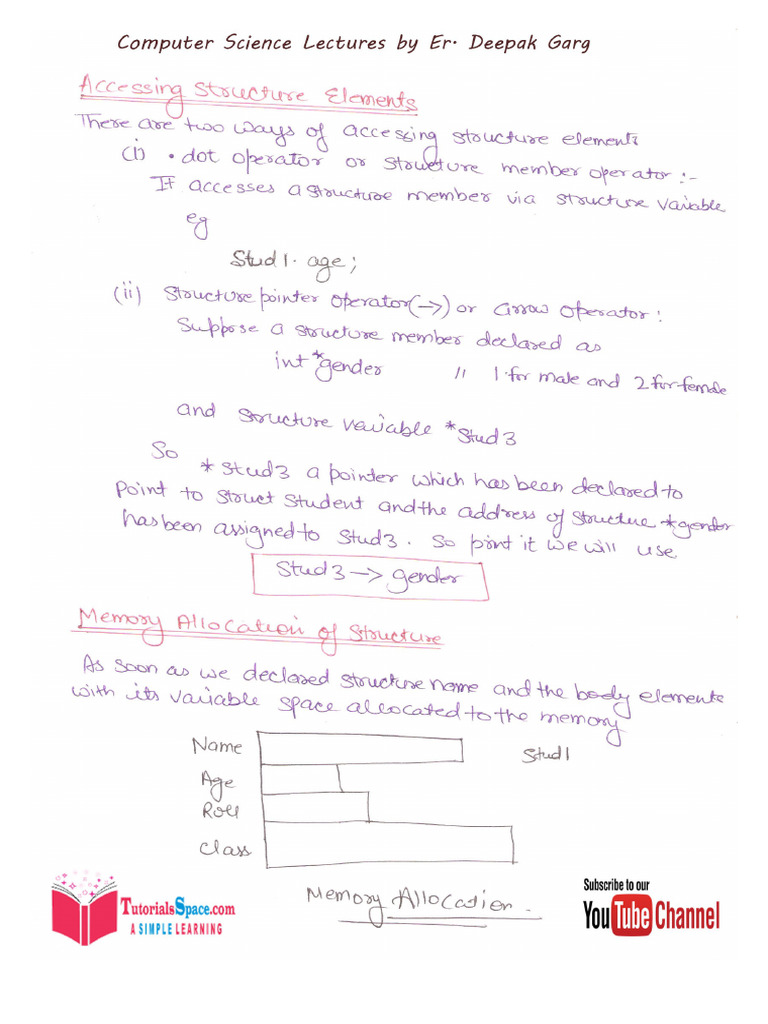 Computer Science Lectures by Er. Deepak Garg
Accessing Structure Elements
There are two ways of accessing structure elements
(i) . dot operator or structure member operator :-
It accesses a structure member via structure variable
eg
Stud1. age;
(ii) Structure pointer operator(→) or arrow operator :
Suppose a structure member declared as
int *gender // 1 for male and 2 for female
and structure variable *stud3
So
* stud3 a pointer which has been declared to
point to struct student and the address of structure *gender
has been assigned to stud3. So print it we will use
Stud3 → gender
Memory Allocation of Structure
As soon as we declared structure name and the body elements
with its variable space allocated to the memory
Name Stud1
Age
Roll
Class
Memory Allocation.
TutorialsSpace.com
A SIMPLE LEARNING
Subscribe to our
YouTube Channel